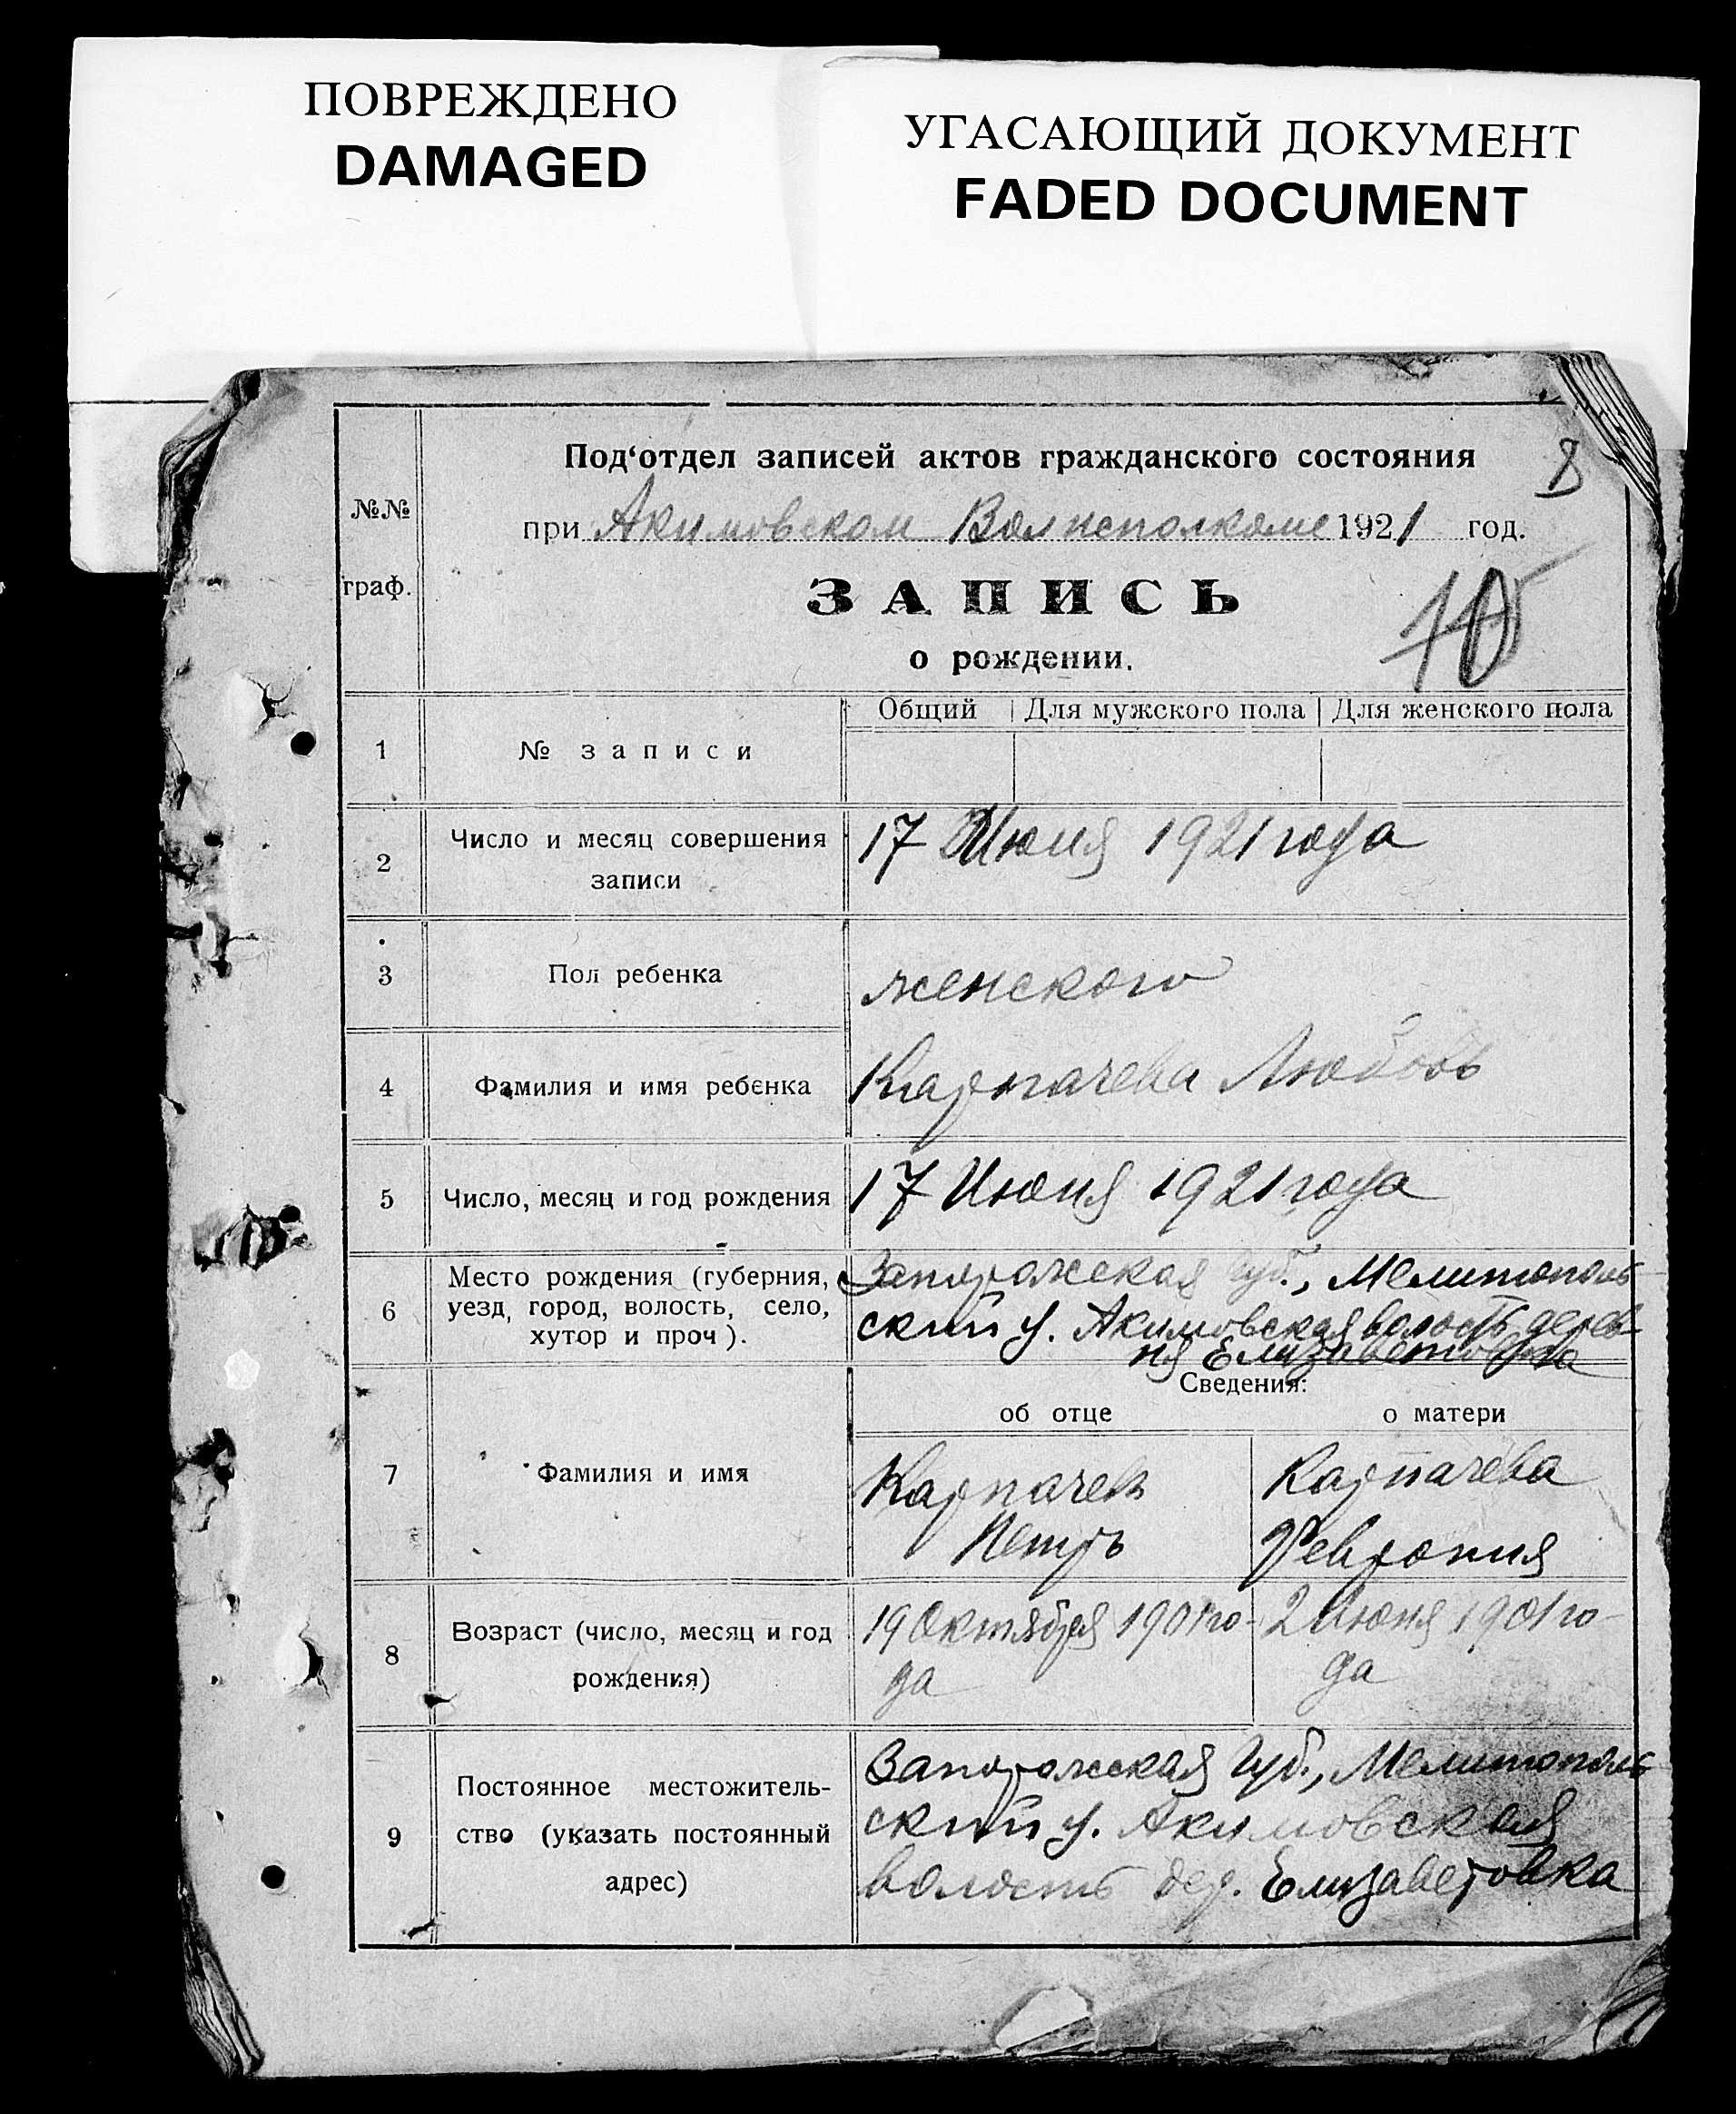 ПОВРЕЖДЕНО
DAMAGED
УГАСАЮЩИЙ ДОКУМЕНТ
FADED DOCUMENT
№№
граф.
Под‘отдел записей актов гражданского состояния
8
при Акимовском Волисполкоме 1921 год.
ЗАПИСЬ
о рождении.
10
Общий Для мужского пола Для женского пола
1 № записи
2 Число и месяц совершения
записи
17 Июня 1921 года
3 Пол ребенка
женского
4 Фамилия и имя ребенка
Карпачева Любовь
5 Число, месяц и год рождения
17 Июня 1921 года
6 Место рождения (губерния,
уезд, город, волость, село,
хутор и проч).
Запорожская губ., Мелитополь
ский у. Акимовская волость дерев-
ня Елизаветовка
Сведения:
об отце о матери
7 Фамилия и имя
Карпачев
Петръ
Карпачева
Феврония
8 Возраст (число, месяц и год
рождения)
19 Октября 1901 го-
да
2 Июня 1901 го-
да
9 Постоянное местожитель-
ство (указать постоянный
адрес)
Запорожская Губ., Мелитополь
ский у. Акимовская
волость дер. Елизаветовка